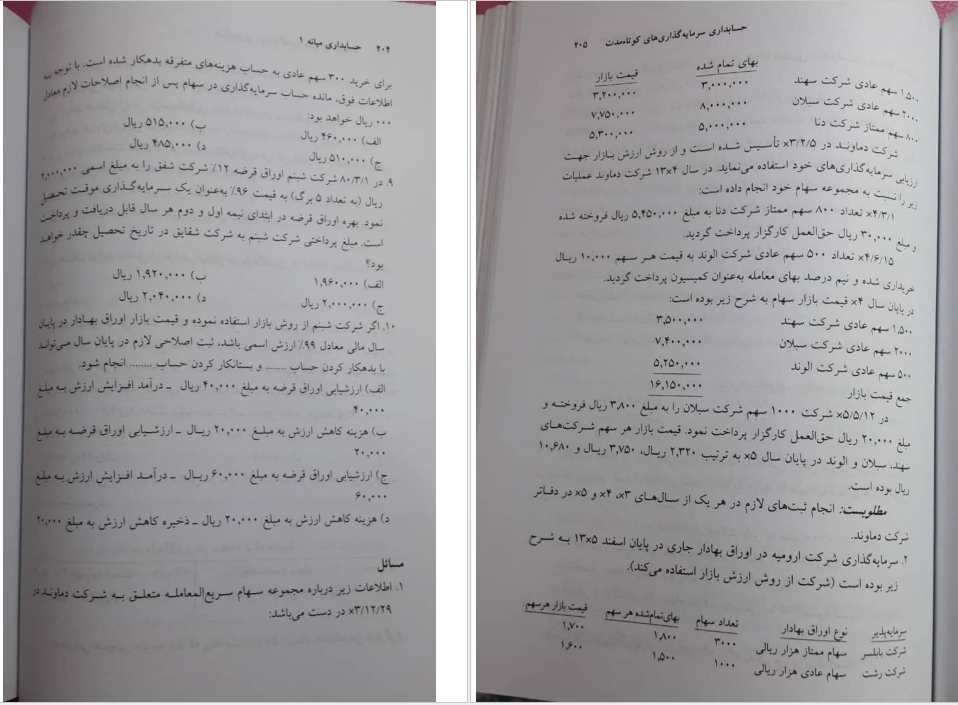 ۲۰۴ حسابداری میانه ۱
برای خرید ۳۰۰ سهم عادی به حساب هزینه‌های متفرقه بدهکار شده است. با توجه به
اطلاعات فوق، مانده حساب سرمایه‌گذاری در سهام پس از انجام اصلاحات لازم معادل
۰۰۰ ریال خواهد بود:
الف) ۴۶۰,۰۰۰ ریال ب) ۵۱۵,۰۰۰ ریال
ج) ۵۱۰,۰۰۰ ریال د) ۴۸۵,۰۰۰ ریال
۹. در ۸۰/۳/۱ شرکت شبنم اوراق قرضه ۱۲٪ شرکت شفق را به مبلغ اسمی ۲,۰۰۰,۰۰۰
ریال (به تعداد ۵ برگ) به قیمت ۹۶٪ به‌عنوان یک سرمایه‌گذاری موقت تحصیل
نمود. بهره اوراق قرضه در ابتدای نیمه اول و دوم هر سال قابل دریافت و پرداخت
است. مبلغ پرداختی شرکت شبنم به شرکت شقایق در تاریخ تحصیل چقدر خواهد
بود؟
الف) ۱,۹۶۰,۰۰۰ ب) ۱,۹۲۰,۰۰۰ ریال
ج) ۲,۰۰۰,۰۰۰ ریال د) ۲,۰۴۰,۰۰۰ ریال
۱۰. اگر شرکت شبنم از روش بازار استفاده نموده و قیمت بازار اوراق بهادار در پایان
سال مالی معادل ۹۹٪ ارزش اسمی باشد، ثبت اصلاحی لازم در پایان سال می‌تواند
با بدهکار کردن حساب ........ و بستانکار کردن حساب ........ انجام شود.
الف) ارزشیابی اوراق قرضه به مبلغ ۴۰,۰۰۰ ریال ـ درآمد افزایش ارزش به مبلغ
۴۰,۰۰۰
ب) هزینه کاهش ارزش به مبلغ ۲۰,۰۰۰ ریال ـ ارزشیابی اوراق قرضه به مبلغ
۲۰,۰۰۰
ج) ارزشیابی اوراق قرضه به مبلغ ۶۰,۰۰۰ ریال ـ درآمد افزایش ارزش به مبلغ
۶۰,۰۰۰
د) هزینه کاهش ارزش به مبلغ ۲۰,۰۰۰ ریال ـ ذخیره کاهش ارزش به مبلغ ۲۰,۰۰۰
مسائل
۱. اطلاعات زیر درباره مجموعه سهام سریع‌المعامله متعلق به شرکت دماوند در
×۳/۱۲/۲۹ در دست می‌باشد:
حسابداری سرمایه‌گذاری‌های کوتاه‌مدت ۲۰۵
بهای تمام شده قیمت بازار
۱,۵۰۰ سهم عادی شرکت سهند ۳,۰۰۰,۰۰۰ ۳,۲۰۰,۰۰۰
۲۰۰۰ سهم عادی شرکت سبلان ۸,۰۰۰,۰۰۰ ۷,۷۵۰,۰۰۰
۸۰۰ سهم ممتاز شرکت دنا ۵,۰۰۰,۰۰۰ ۵,۳۰۰,۰۰۰
شرکت دماوند در ×۳/۲/۵ تأسیس شده است و از روش ارزش بازار جهت
ارزیابی سرمایه‌گذاری‌های خود استفاده می‌نماید. در سال ۱۳×۴ شرکت دماوند عملیات
زیر را نسبت به مجموعه سهام خود انجام داده است:
×۴/۳/۱ تعداد ۸۰۰ سهم ممتاز شرکت دنا به مبلغ ۵,۴۵۰,۰۰۰ ریال فروخته شده
و مبلغ ۳۰,۰۰۰ ریال حق‌العمل کارگزار پرداخت گردید.
×۴/۶/۱۵ تعداد ۵۰۰ سهم عادی شرکت الوند به قیمت هر سهم ۱۰,۰۰۰ ریال
خریداری شده و نیم درصد بهای معامله به‌عنوان کمیسیون پرداخت گردید.
در پایان سال ×۴ قیمت بازار سهام به شرح زیر بوده است:
۱,۵۰۰ سهم عادی شرکت سهند ۳,۵۰۰,۰۰۰
۲۰۰۰ سهم عادی شرکت سبلان ۷,۴۰۰,۰۰۰
۵۰۰ سهم عادی شرکت الوند ۵,۲۵۰,۰۰۰
جمع قیمت بازار ۱۶,۱۵۰,۰۰۰
در ×۵/۵/۱۲ شرکت ۱۰۰۰ سهم شرکت سبلان را به مبلغ ۳,۸۰۰ ریال فروخته و
مبلغ ۲۰,۰۰۰ ریال حق‌العمل کارگزار پرداخت نمود. قیمت بازار هر سهم شرکت‌های
سهند، سبلان و الوند در پایان سال ×۵ به ترتیب ۲,۳۲۰ ریال، ۳,۷۵۰ ریال و ۱۰,۶۸۰
ریال بوده است.
مطلوبست: انجام ثبت‌های لازم در هر یک از سال‌های ×۳، ×۴ و ×۵ در دفاتر
شرکت دماوند.
۲. سرمایه‌گذاری شرکت ارومیه در اوراق بهادار جاری در پایان اسفند ۱۳×۵ به شرح
زیر بوده است (شرکت از روش ارزش بازار استفاده می‌کند).
سرمایه‌پذیر نوع اوراق بهادار تعداد سهام بهای‌تمام‌شده هر سهم قیمت بازار هرسهم
شرکت بابلسر سهام ممتاز هزار ریالی ۳۰۰۰ ۱,۸۰۰ ۱,۷۰۰
شرکت رشت سهام عادی هزار ریالی ۱۰۰۰ ۱,۵۰۰ ۱,۶۰۰